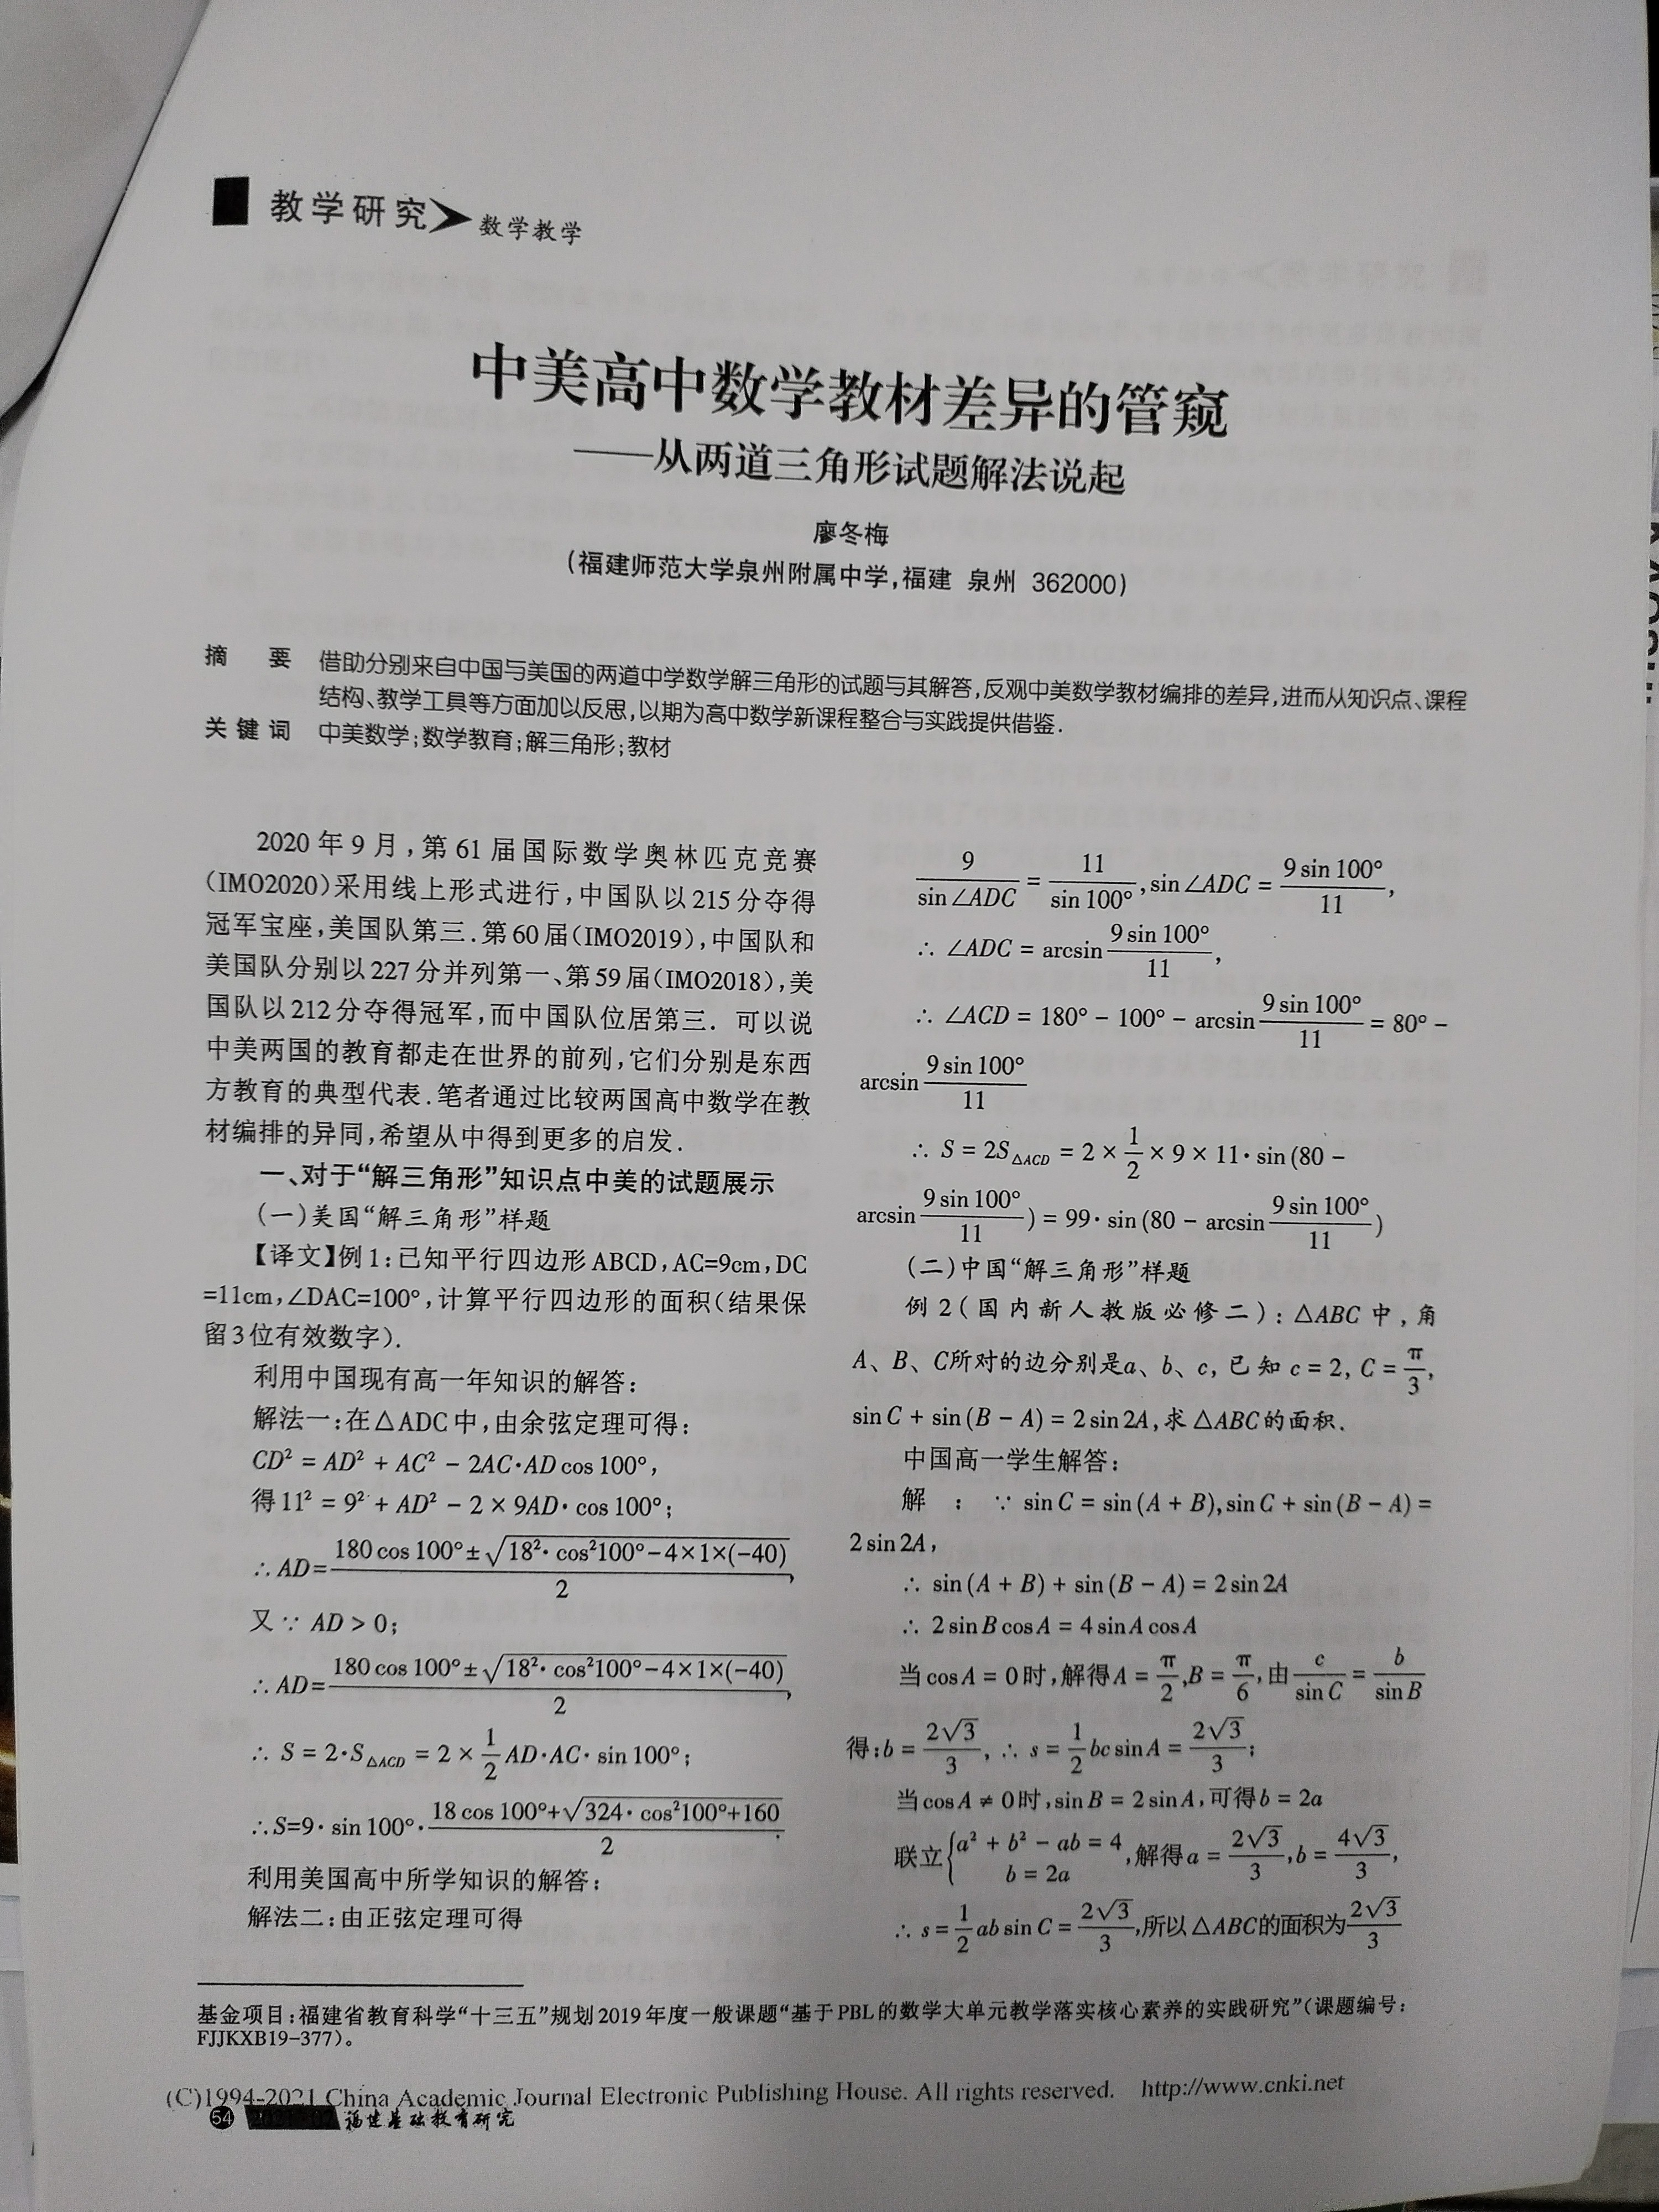 教学研究 数学教学
中美高中数学教材差异的管窥
——从两道三角形试题解法说起
廖冬梅
(福建师范大学泉州附属中学,福建 泉州 362000)
摘 要 借助分别来自中国与美国的两道中学数学解三角形的试题与其解答,反观中美数学教材编排的差异,进而从知识点、课程
结构、教学工具等方面加以反思,以期为高中数学新课程整合与实践提供借鉴.
关键词 中美数学;数学教育;解三角形;教材
2020年9月,第61届国际数学奥林匹克竞赛
(IMO2020)采用线上形式进行,中国队以215分夺得
冠军宝座,美国队第三.第60届(IMO2019),中国队和
美国队分别以227分并列第一、第59届(IMO2018),美
国队以212分夺得冠军,而中国队位居第三. 可以说
中美两国的教育都走在世界的前列,它们分别是东西
方教育的典型代表.笔者通过比较两国高中数学在教
材编排的异同,希望从中得到更多的启发.
一、对于“解三角形”知识点中美的试题展示
(一)美国“解三角形”样题
【译文】例1:已知平行四边形ABCD,AC=9cm,DC
=11cm,∠DAC=100°,计算平行四边形的面积(结果保
留3位有效数字).
利用中国现有高一年知识的解答:
解法一:在△ADC中,由余弦定理可得:
CD² = AD² + AC² − 2AC·AD cos 100°,
得11² = 9² + AD² − 2 × 9AD· cos 100°;
∴ AD=(180 cos 100°±√(18²· cos²100°−4×1×(−40)))/2,
又∵ AD > 0;
∴ AD=(180 cos 100°±√(18²· cos²100°−4×1×(−40)))/2,
∴ S = 2·S△ACD = 2 × 1/2 AD·AC· sin 100°;
∴ S=9· sin 100°·(18 cos 100°+√(324· cos²100°+160))/2.
利用美国高中所学知识的解答:
解法二:由正弦定理可得
9/sin∠ADC = 11/sin 100°, sin∠ADC = 9 sin 100°/11,
∴ ∠ADC = arcsin 9 sin 100°/11,
∴ ∠ACD = 180° − 100° − arcsin 9 sin 100°/11 = 80° −
arcsin 9 sin 100°/11
∴ S = 2S△ACD = 2 × 1/2 × 9 × 11· sin (80 −
arcsin 9 sin 100°/11) = 99· sin (80 − arcsin 9 sin 100°/11)
(二)中国“解三角形”样题
例2(国内新人教版必修二): △ABC中,角
A、B、C所对的边分别是a、b、c,已知 c = 2, C = π/3,
sin C + sin (B − A) = 2 sin 2A,求△ABC的面积.
中国高一学生解答:
解 : ∵ sin C = sin (A + B), sin C + sin (B − A) =
2 sin 2A,
∴ sin (A + B) + sin (B − A) = 2 sin 2A
∴ 2 sin B cos A = 4 sin A cos A
当 cos A = 0时,解得A = π/2, B = π/6,由 c/sin C = b/sin B
得:b = 2√3/3, ∴ s = 1/2 bc sin A = 2√3/3;
当 cos A ≠ 0时, sin B = 2 sin A,可得b = 2a
联立{a² + b² − ab = 4, b = 2a,解得a = 2√3/3, b = 4√3/3,
∴ s = 1/2 ab sin C = 2√3/3,所以△ABC的面积为2√3/3
基金项目:福建省教育科学“十三五”规划2019年度一般课题“基于PBL的数学大单元教学落实核心素养的实践研究”(课题编号:
FJJKXB19-377)。
(C)1994-2021 China Academic Journal Electronic Publishing House. All rights reserved. http://www.cnki.net
54 福建基础教育研究